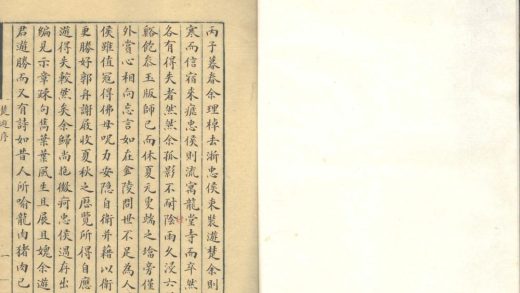 丙子暮春余理棹去漸忠侯束裝遊楚余則
寒而信宿來㾗忠侯則流寓龍堂寺而卒然
各有得失者然然余孤影不耐陰雨久浸六
谿飽泰玉版師已而休夏元更端之墖旁僅
外賞心相向忘言如在金陵問世不足為人
侯雖值冦得佛母呢力安隐自衛并藉以衛
更勝好郭舟謝嚴收夏秋之歷覽所得自應
遊得失較然矣余歸尚拖微痾忠侯過存出
編見示章疎句雋葉葉風生且展且媿余遊
君遊勝而又有詩如昔人所喻龍肉猪肉已
楚遊序
一